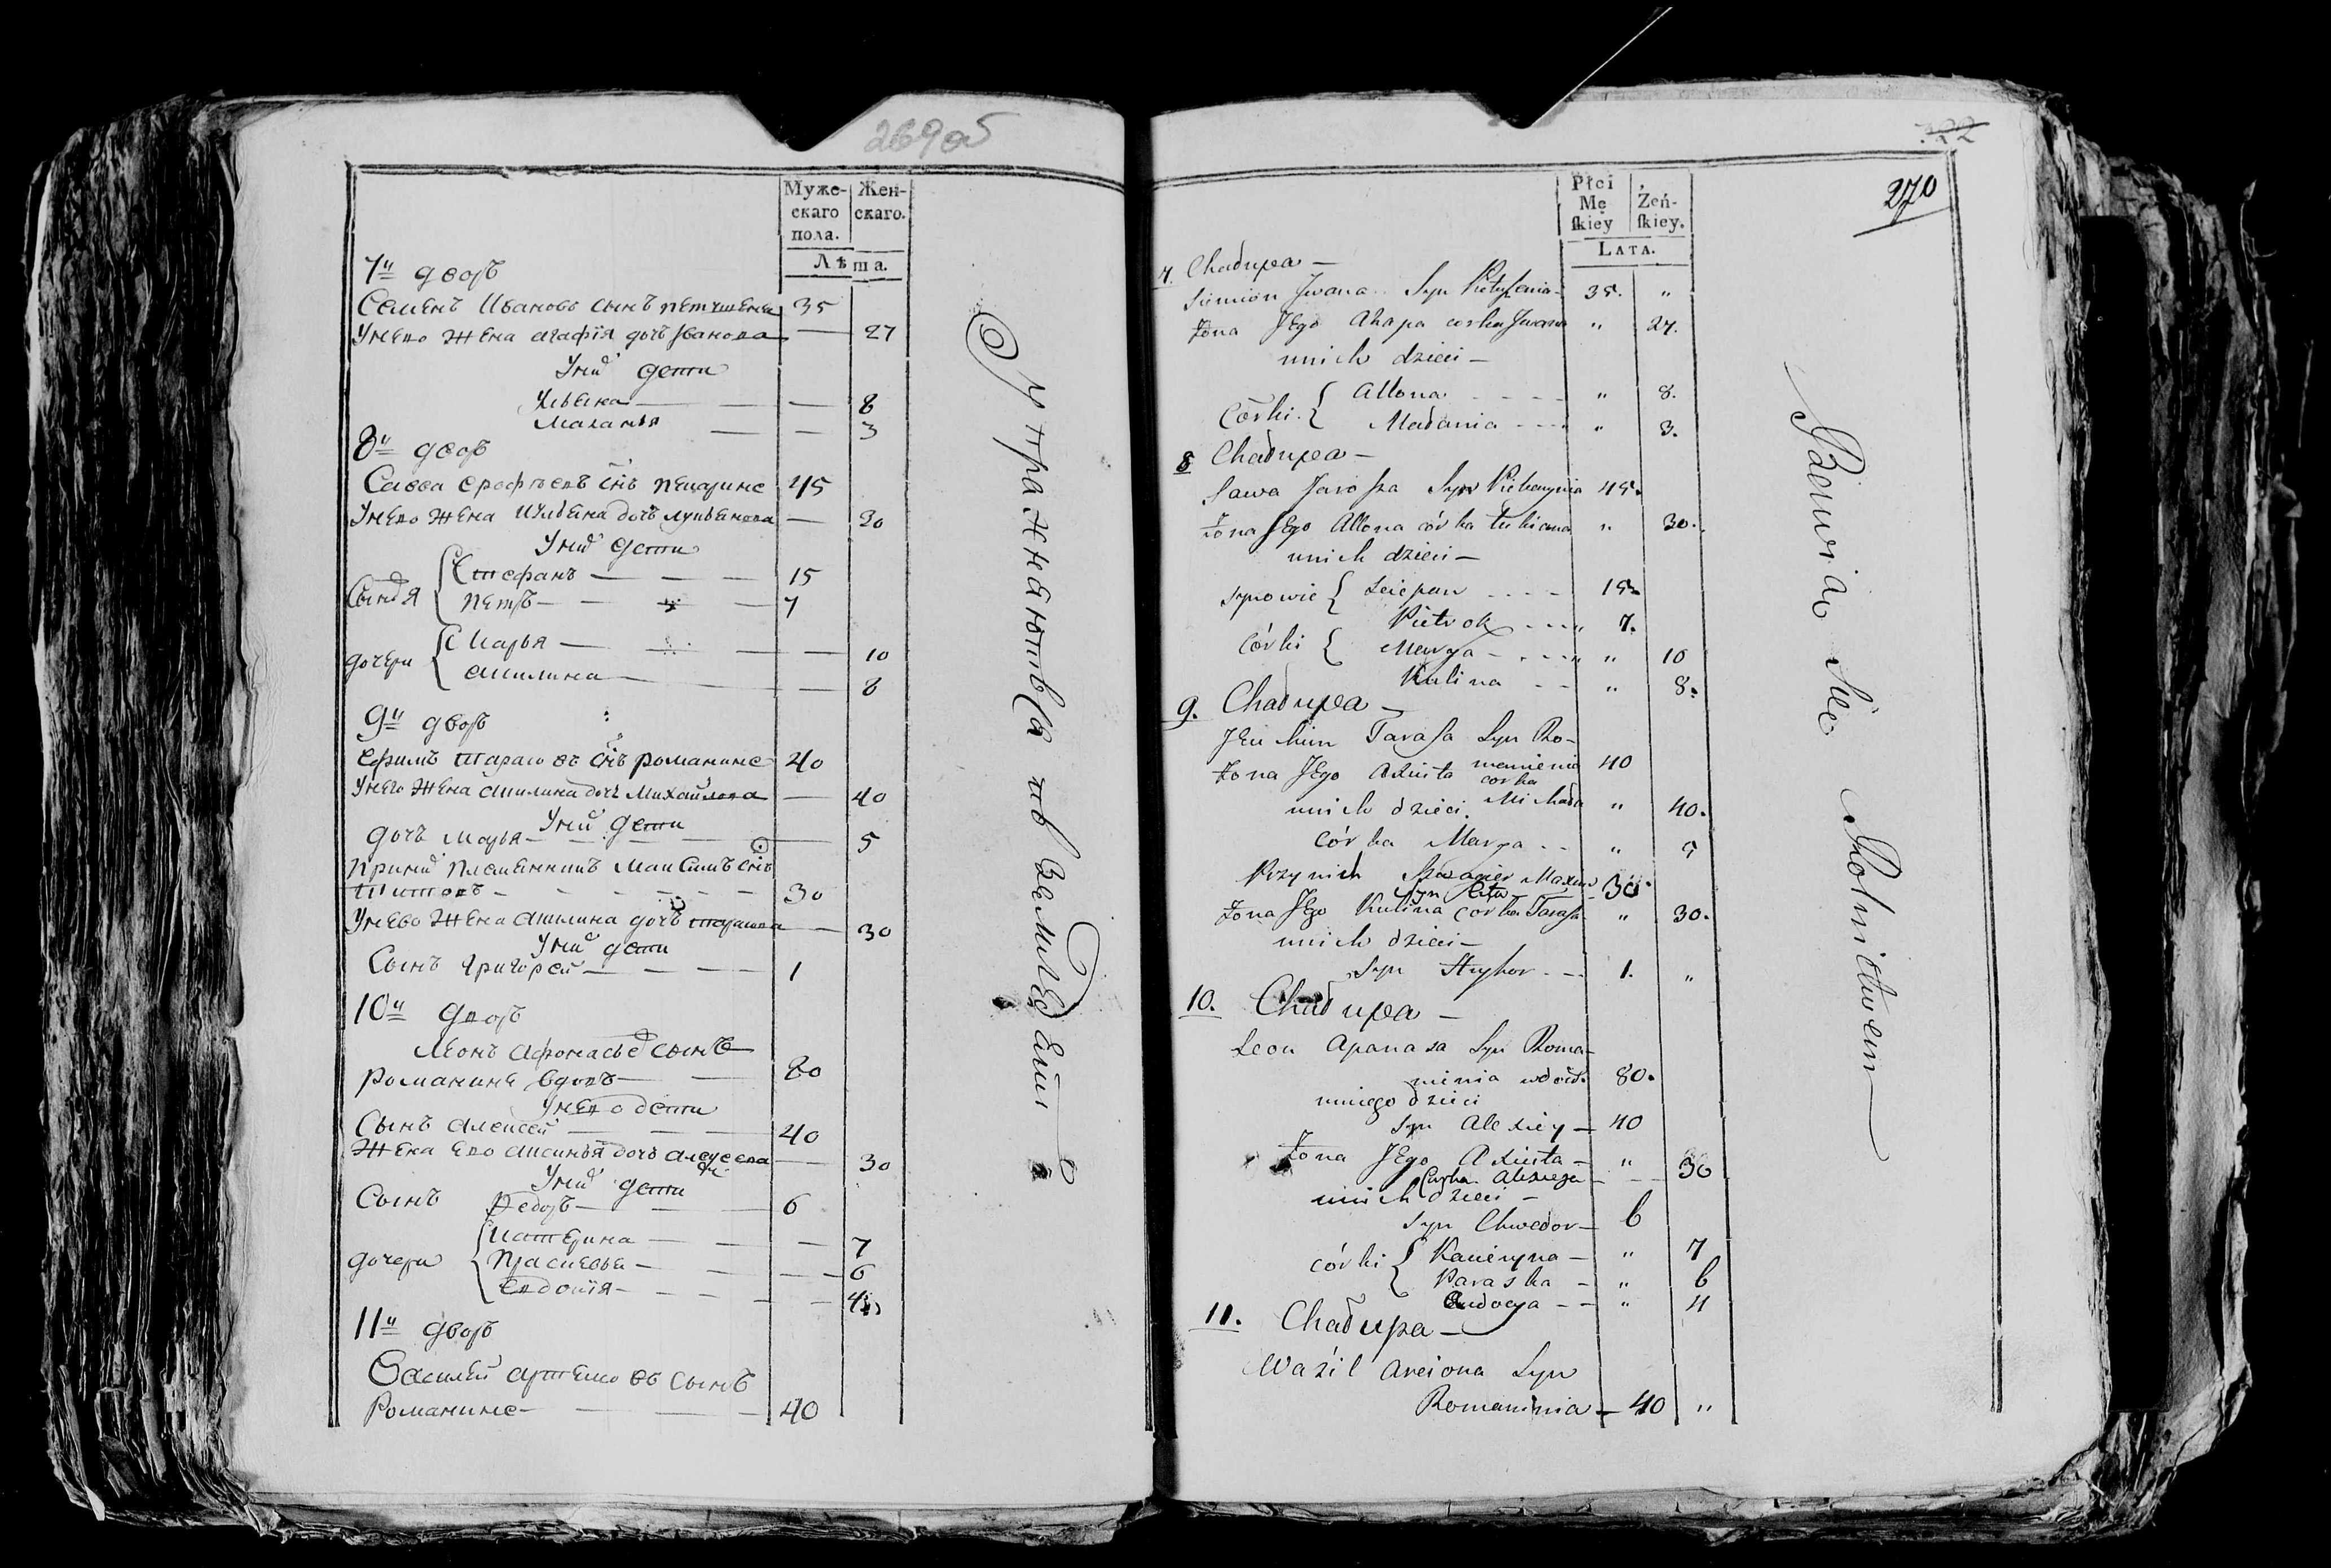 269об
Муже-
скаго
пола.
Жен-
скаго.
Лѣта.
7й дворъ
Семенъ Ивановъ сынъ 35
Унево жена Агафія дочь Иванова — 27
Уних дети
Ульяна — — 8
Маланья — — 3
8й дворъ
Савва снъ 45
Унево жена дочь — 30
Уних дети
Сыновья { Стефанъ — — — 15
Петръ — — — 7
дочери { Марья — — — 10
Акилина — — 8
9й дворъ
Ефимъ Тарасовъ снъ романине 40
Унего жена Акилина дочь Михайлова — 40
Уних дети
дочь Марья — — — 5
Приних племянникъ Максимъ снъ
Титовъ — — — 30
Унево жена Акилина дочь Тарасова — 30
Уних дети
Сынъ Григорей — — — 1
10й дворъ
Леонъ Афонасьев сынъ
Романине вдовъ — — 80
Унево дети
Сынъ Алексей — — 40
Жена ево Аксинья дочь Алексеева — 30
Уних дети
Сынъ Федоръ — — 6
дочери { Катерина — — 7
Прасковья — — — 6
Евдокія — — — 4
11й дворъ
Василей Артемовъ сынъ
Романине — — — 40
Упражняются в Земледелии
322
270
Płci
Mę
skiey
Żeń-
skiey.
LATA.
7. Chałupa —
Siemion Jwana Syn 35. "
Żona Jego Ahapa corka Jwana " 27.
unich dzieci —
Córki { Allona - - - - " 8.
Małania - - - - " 3.
8 Chałupa —
Sawa Jarosza Syn 45.
Żona Jego Allona córka Łukiana " 30.
unich dzieci —
synowie { Sciepan - - - - 15
Pietrok - - - " 7.
Córki { Marya - - - - " " 10
Kulina - - " 8.
9. Chałupa —
Jeuchim Tarasa Syn Ro-
manienia 40
Żona Jego Axiuta corka
Michała " 40.
unich dzieci.
Córka Marya - - " 5
Przynich Szwagier Maxim
Syn Tita 30
Żona Jego Kulina corka Tarasa " 30.
unich dzieci —
Syn Hryhor - - 1. "
10. Chałupa —
Leon Apanasa Syn Roma-
nienia wdow. 80.
uniego dzieci
Syn Alexiey — 40
Żona Jego Axiuta — "
Corka Alexieja - - 30
unich dzieci —
Syn Chwedor — 6
córki { Kacieryna — " 7
Paraska — " 6
Eudocya - - " 4
11. Chałupa —
Wasil Arciona Syn
Romanienia — 40 "
Bawią się Rolnictwem